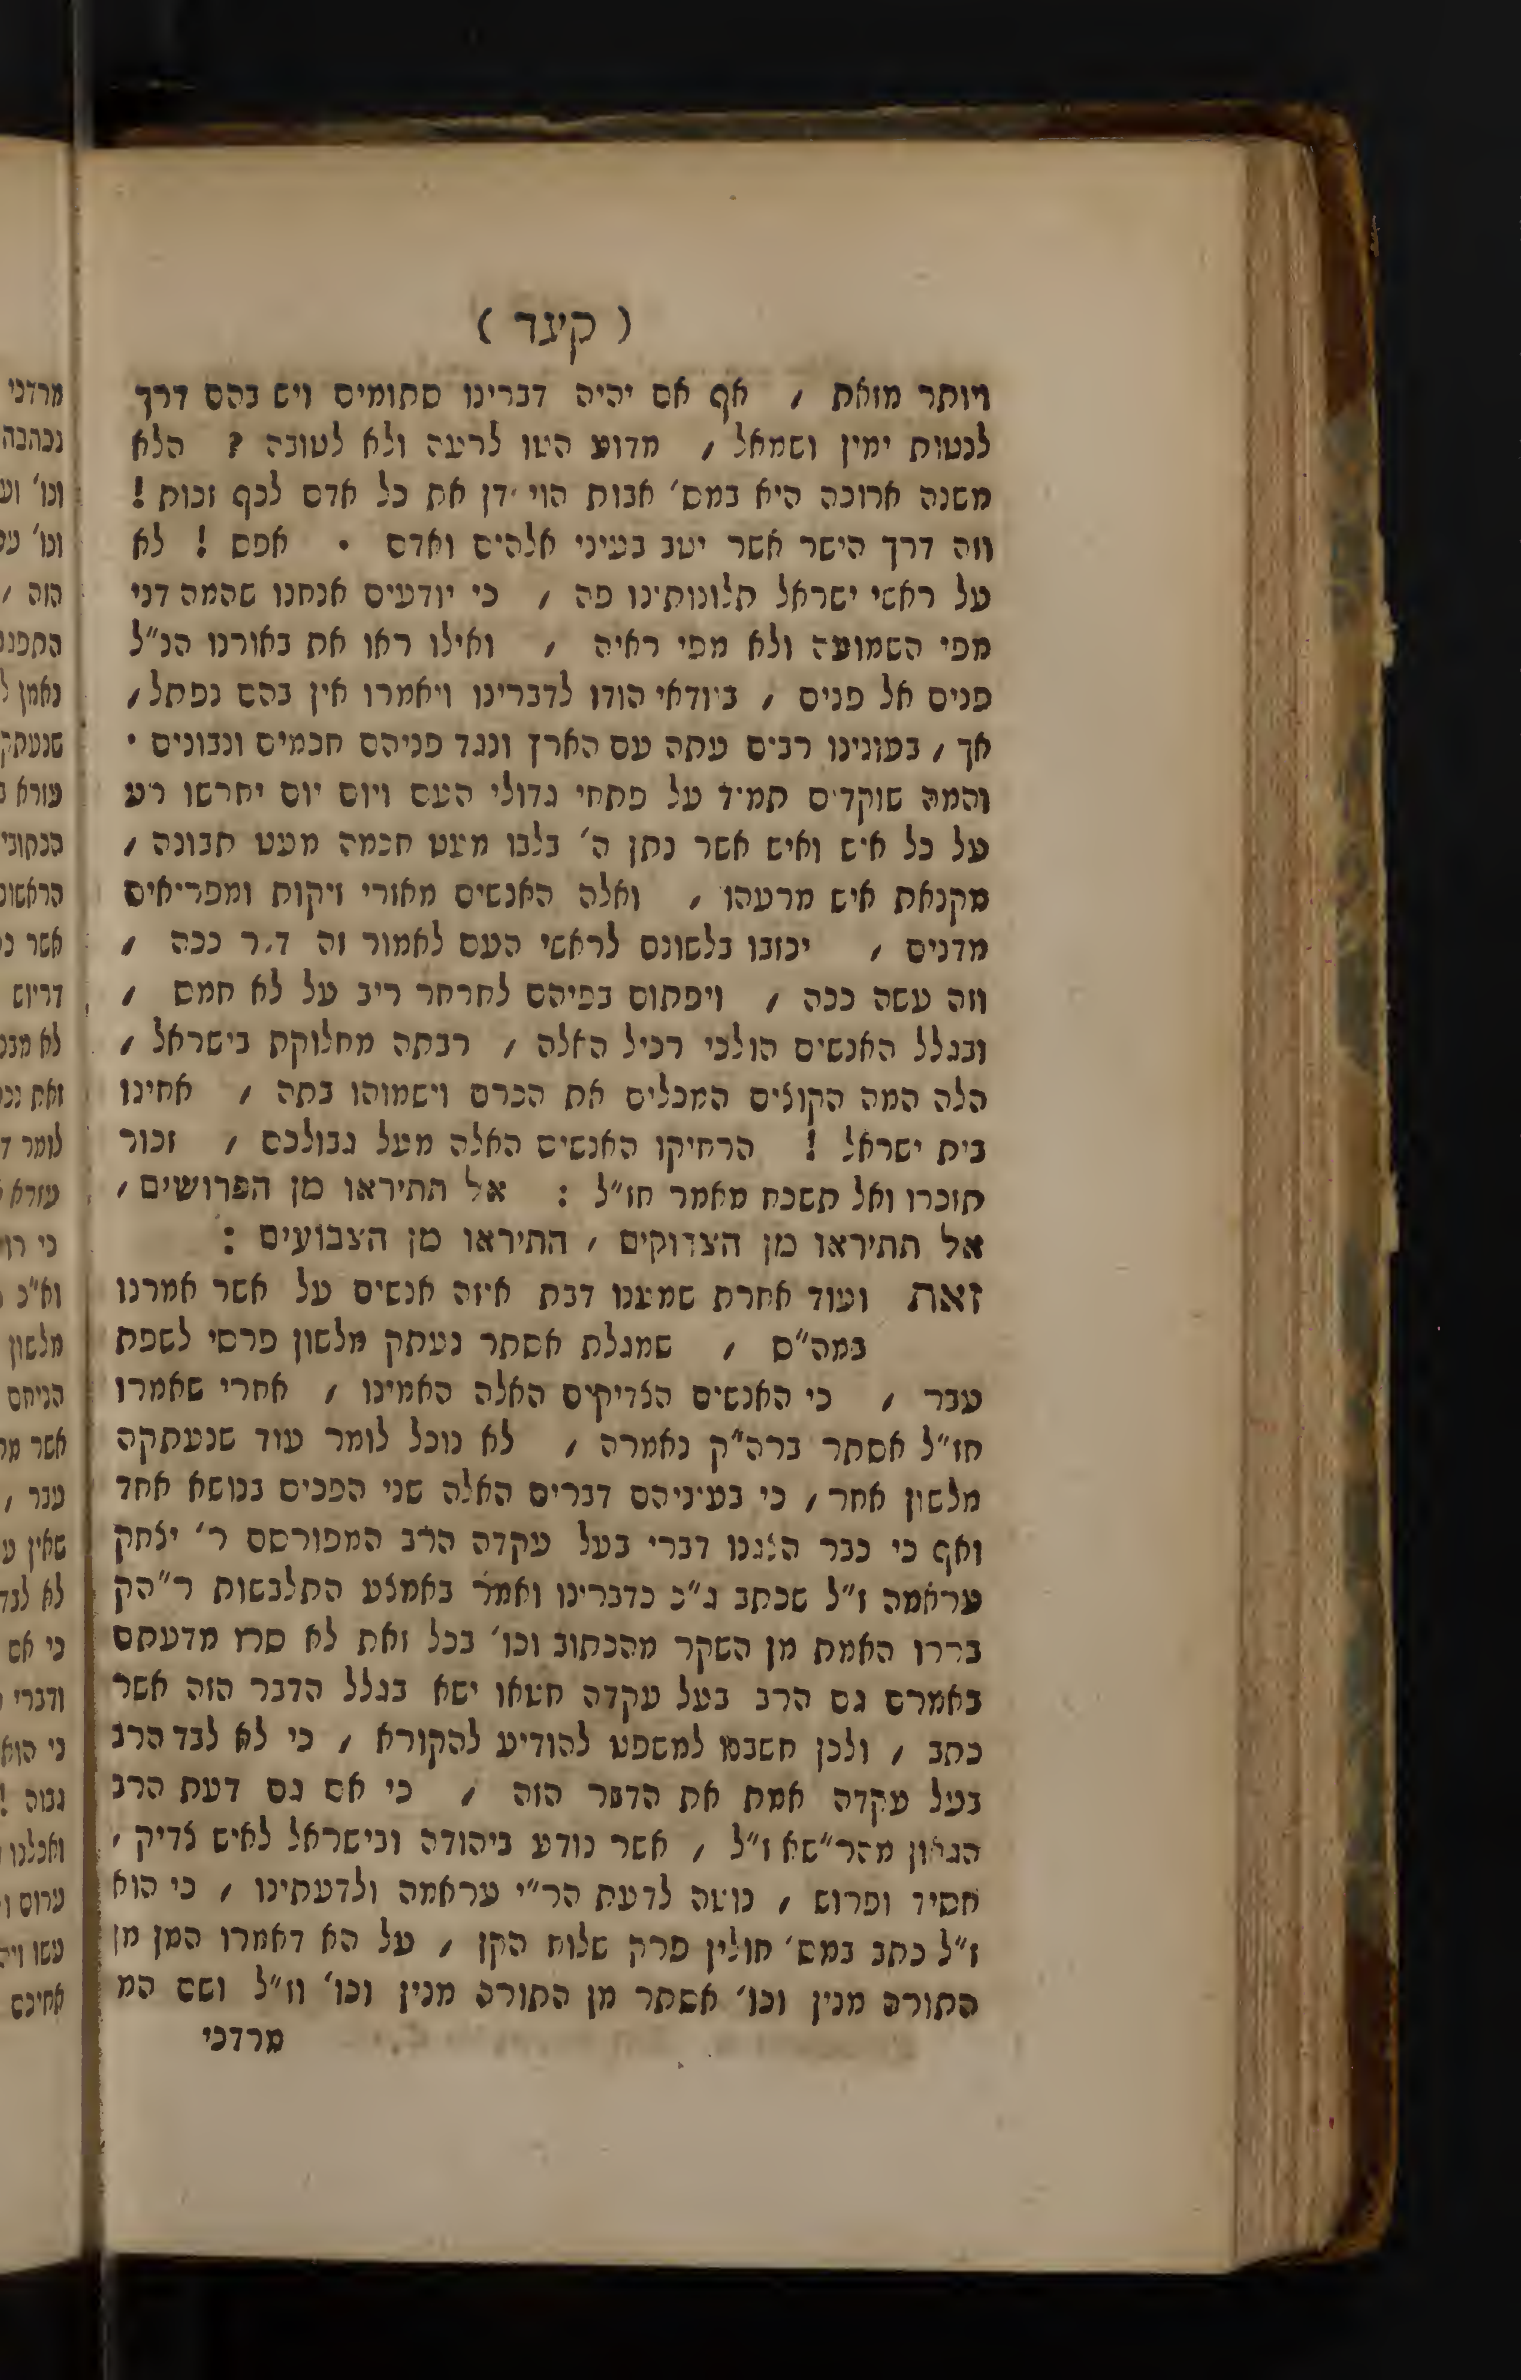 ( קצד )
ויותר מזאת , אף אם יהיה דברינו סתומים ויש בהם דרך
לנטות ימין ושמאל , מדוע הטו לרעה ולא לטובה ? הלא
משנה ארוכה היא במס' אבות הוי דן את כל אדם לכף זכות !
וזה דרך הישר אשר יטב בעיני אלהים ואדם . אפס ! לא
על ראשי ישראל תלונותינו פה , כי יודעים אנחנו שהמה דני
מפי השמועה ולא מפי ראיה , ואילו ראו את באורנו הנ"ל
פנים אל פנים , בוודאי הודו לדברינו ויאמרו אין בהם נפתל ,
אך , בעונינו רבים עתה עם הארץ ונגד פניהם חכמים ונבונים .
והמה שוקדים תמיד על פתחי גדולי העם ויום יום יחרשו רע
על כל איש ואיש אשר נתן ה' בלבו מעט חכמה מעט תבונה ,
מקנאת איש מרעהו , ואלה האנשים מאזרי זיקות ומפריאים
מדנים , יכזבו בלשונם לראשי העם לאמור זה דבר ככה ,
וזה עשה ככה , ויפתום בפיהם לחרחר ריב על לא חמס ,
ובגלל האנשים הולכי רכיל האלה , רבתה מחלוקת בישראל ,
הלה המה הקוצים המכלים את הכרם וישמוהו בתה , אחינו
בית ישראל ! הרחיקו האנשים האלה מעל גבולכם , זכור
תזכרו ואל תשכח מאמר חז"ל : אל תתיראו מן הפרושים ,
אל תתיראו מן הצדוקים , התיראו מן הצבועים :
זאת ועוד אחרת שמענו דבת איזה אנשים על אשר אמרנו
במה"ס , שמגלת אסתר נעתק מלשון פרסי לשפת
עבר , כי האנשים הצדיקים האלה האמינו , אחרי שאמרו
חז"ל אסתר ברה"ק נאמרה , לא נוכל לומר עוד שנעתקה
מלשון אחר , כי בעיניהם דברים האלה שני הפכים בנושא אחד
ואף כי כבר הצגנו דברי בעל עקדה הרב המפורסם ר' יצחק
עראמה ז"ל שכתב ג"כ כדברינו ואמר באמצע התלבשות ר"הק
בררו האמת מן השקר מהכתוב וכו' בכל זאת לא סרו מדעתם
באמרם גם הרב בעל עקדה חטאו ישא בגלל הדבר הזה אשר
כתב , ולכן חשבנו למשפט להודיע להקורא , כי לא לבד הרב
בעל עקדה אמת את הדבר הזה , כי אם גם דעת הרב
הגאון מהר"שא ז"ל , אשר נודע ביהודה ובישראל לאיש צדיק ,
חסיד ופרוש , נוטה לדעת הר"י עראמה ולדעתינו , כי הוא
ז"ל כתב במס' חולין פרק שלוח הקן , על הא דאמרו המן מן
התורה מנין וכו' אסתר מן התורה מנין וכו' וז"ל ושם המ
מרדכי